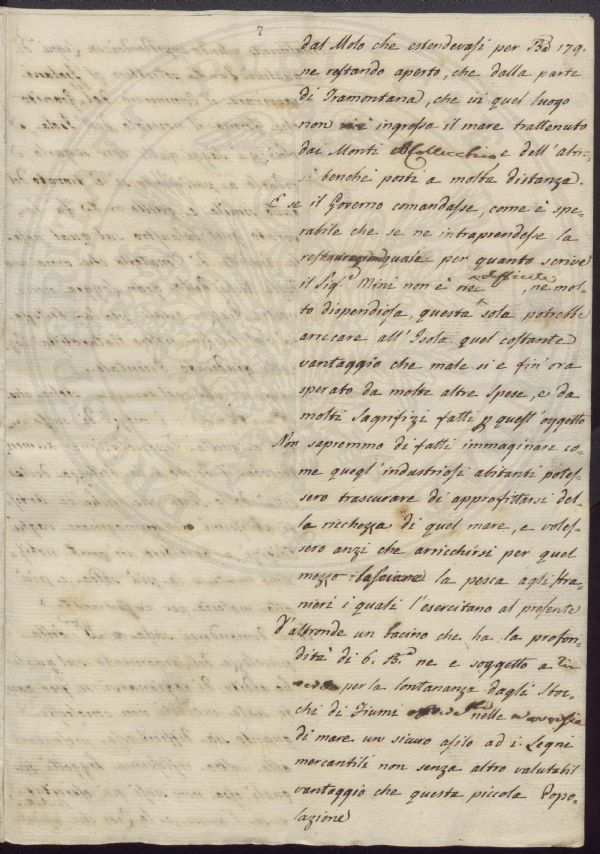 7
dal Molo che estendevasi per Bª 179.
ne restando aperto, che dalla parte
di Tramontana, che in quel luogo
non ingrossa il mare trattenuto
dai Monti e dell'altri-
si benchè posti a molta distanza.
E se il Governo comandasse, come è spe-
rabile che se ne intraprendesse la
quale per quanto scrive
il Sigʳ Mini non è ne difficile, ne mol-
to dispendiosa, questa sola potrebbe
arrecare all'Isola quel costante
vantaggio che male si è fin'ora
sperato da molte altre spese, e da
molti sagrifizi fatti p quest'oggetto
Non sapremmo di fatti immaginare co-
me quegl'industriosi abitanti potes-
sero trascurare di approfittarsi del-
la ricchezza di quel mare, e voles-
sero anzi che arricchirsi per quel
mezzo lasciare la pesca agli stra-
nieri i quali l'esercitano al presente
D'altronde un bacino che ha la profon-
dità di 6. Bª ne e soggetto a
per la lontananza dagli sboc-
chi di Fiumi nelle
di mare un sicuro asilo ad i Legni
mercantili non senza altro valutabil
vantaggio che questa piccola Popo-
lazione